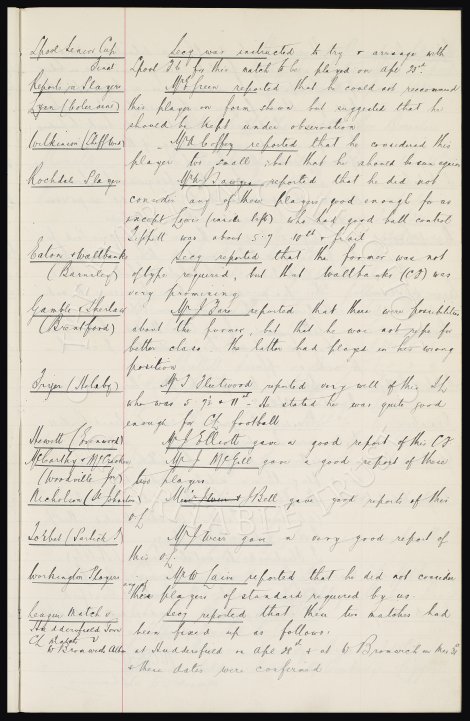 Lpool Senior Cup Secy was instructed to try & arrange with
Final Lpool Fb for this match to be played on Apl 23rd.
Reports on Players Mr Green reported that he could not recommend
Lyon (Wolverines) this player on form shown but suggested that he
should be kept under observation
Wilkinson (Sheff Wed) Mr A Coffey reported that he considered this
player too small, but that he should be seen again
Rochdale Players Mr H Sawyer reported that he did not
consider any of these players good enough for us
except Lowe (inside left) who had good ball control.
Tippett was about 5-7 10st & frail
Eaton & Wallbanks Secy reported that the former was not
(Barnsley) of type required, but that Wallbanks (CF) was
very promising
Gamble & Sherlaw Mr J Fare reported that there were possibilities
(Brentford) about the former, but that he was not ripe for
better class. the latter had played in his wrong
position
Fryer (Nolaby) Mr T Fleetwood reported very well of this I.L.
who was 5 7½ & 11st - He stated he was quite good
enough for CL football
Hewitt (Earlswood) Mr J Elliott gave a good report of this CF
McCarthy & McCracken Mr J McGill gave a good report of these
(Woodville Jnr) two players
Nicholson (St Johnston) J Bell gave good reports of this
O/L
Forbes (Partick T) Mr J Weir gave a very good report of
this O/L
Workington Players Mr W Cain reported that he did not consider
any of these players of standard required by us
League Match v Secy reported that these two matches had
Huddersfield Town been fixed up as follows:
CL Match v
W Bromwich Alb at Huddersfield on Apl 28th & at W Bromwich on
& these dates were confirmed